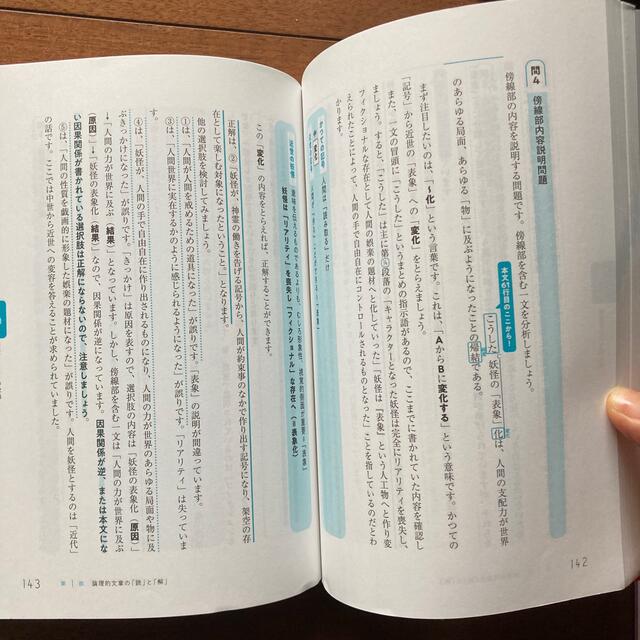 問4 傍線部内容説明問題
傍線部の内容を説明する問題です。傍線部を含む一文を分析しましょう。
本文61行目のここから!
こうした妖怪の「表象」化は、人間の支配力が世界
のあらゆる局面、あらゆる「物」に及ぶようになったことの帰結である。
まず注目したいのは、「〜化」という言葉です。これは、「AからBに変化する」という意味です。かつての
「記号」から近世の「表象」への「変化」をとらえましょう。
また、一文の冒頭に「こうした」というまとめの指示語があるので、ここまでに書かれていた内容を確認し
ましょう。すると、「こうした」は主に第⑭段落の「キャラクターとなった妖怪は完全にリアリティを喪失し、
フィクショナルな存在として人間の娯楽の題材へと化していった」「妖怪は『表象』という人工物へと作り変
えられたことによって、人間の手で自由自在にコントロールされるものとなった」ことを指しているのだとわ
かります。
かつての記号
「変化」
近世の妖怪
意味を伝えるものであるよりも、むしろ形象性、視覚的側面が重要=「表象」
妖怪は「リアリティ」を喪失し「フィクショナル」な存在へ(=表象化)
この「変化」の内容をとらえれば、正解することができます。
正解は、②「妖怪が、神霊の働きを告げる記号から、人間が約束事のなかで作り出す記号になり、架空の存
在として楽しむ対象になったということ。」となります。
他の選択肢を検討してみましょう。
①は、「人間が人間を戒めるための道具になった」が誤りです。「表象」の説明が間違っています。
③は、「人間世界に実在するかのように感じられるようになった」が誤りです。「リアリティ」は失っていま
す。
④は、「妖怪が、人間の手で自由自在に作り出されるものになり、人間の力が世界のあらゆる局面や物に及
ぶきっかけになった」が誤りです。「きっかけ」は原因を表すので、選択肢の内容は「妖怪の表象化(原因)」
→「人間の力が世界に及ぶ(結果)」となっています。しかし、傍線部を含む一文は「人間の力が世界に及ぶ
(原因)」→「妖怪の表象化(結果)」なので、因果関係が逆になっています。因果関係が逆、または本文にな
い因果関係が書かれている選択肢は正解にならないので、注意しましょう。
⑤は、「人間の性質を戯画的に形象した娯楽の題材になった」が誤りです。人間を妖怪とするのは「近代」
の話です。ここでは中世から近世への変容を答えることが求められていました。
142
143 第1部 論理的文章の「読」と「解」